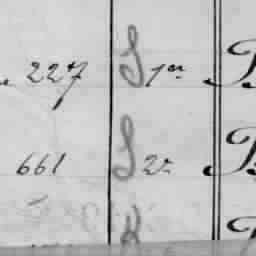 227 S 1er B
661 S 2e B